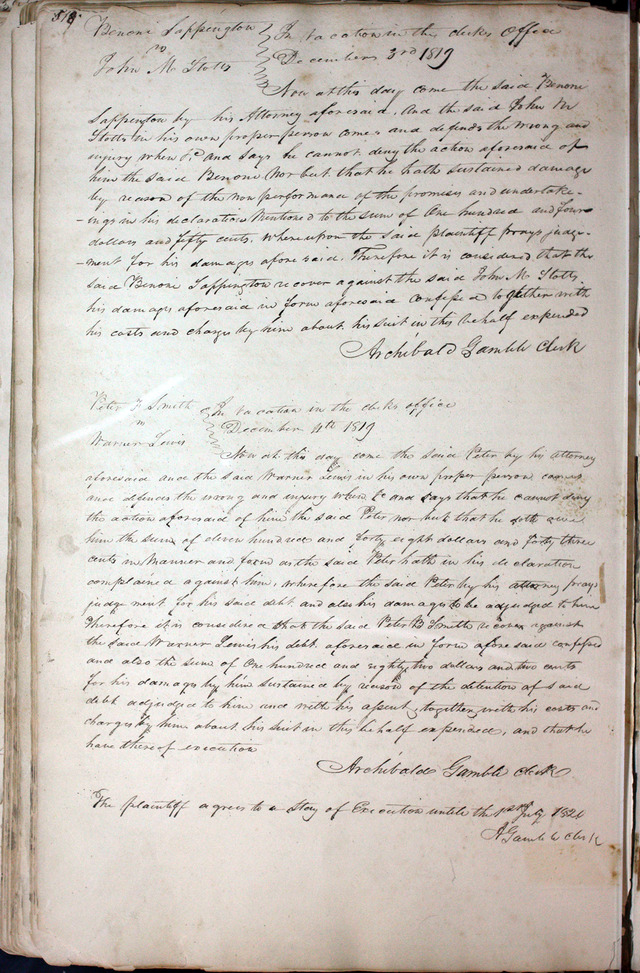 Benoni Sappington } In vacation in the clerks Office
vs } December 3rd 1819
John M Stotts
Now at this day come the said Benone
Sappington by his Attorney aforesaid. And the said John M
Stotts in his own proper person comes and defends the wrong and
injury when &c and says he cannot deny the action aforesaid of
him the said Benone Nor but that he hath sustained damage
by reason of the non performance of the promises and undertake-
-ings in his declaration mentioned to the sum of One hundred and four
-dollars and fifty cents. Whereupon the said plaintiff prays judge-
-ment for his damages aforesaid. Therefore it is considered that the
said Benone Sappington recover against the said John M. Stotts
his damages aforesaid in form aforesaid confessed together with
his costs and charges by him about his suit in this behalf expended
Archibald Gamble Clerk
Peter Smith } In vacation in the clerks office
vs } December 4th 1819
Warner Lewis
Now at this day come the said Peter by his attorney
aforesaid and the said Warner Lewis in his own proper person comes
and defends the wrong and injury when &c and says that he cannot deny
the action aforesaid of him the said Peter, nor but that he doth owe
him the sum of eleven hundred and forty eight dollars and forty three
cents in Manner and form as the said Peter hath in his declaration
complained against him, wherefore the said Peter by his attorney prays
judgement for his said debt and also his damages to be adjudged to him
Therefore it is considered that the said Peter Smith recover against
the said Warner Lewis his debt aforesaid in form afore said confessed
and also the sum of One hundred and eighty two dollars and two cents
for his damages by him sustained by reason of the detention of said
debt adjudged to him and with his assent, together with his costs and
charges by him about his suit in this behalf expended, and that he
have thereof execution
Archibald Gamble clerk
The plaintiff agrees to a stay of Execution untill the 1st July 1820
A Gamble clerk